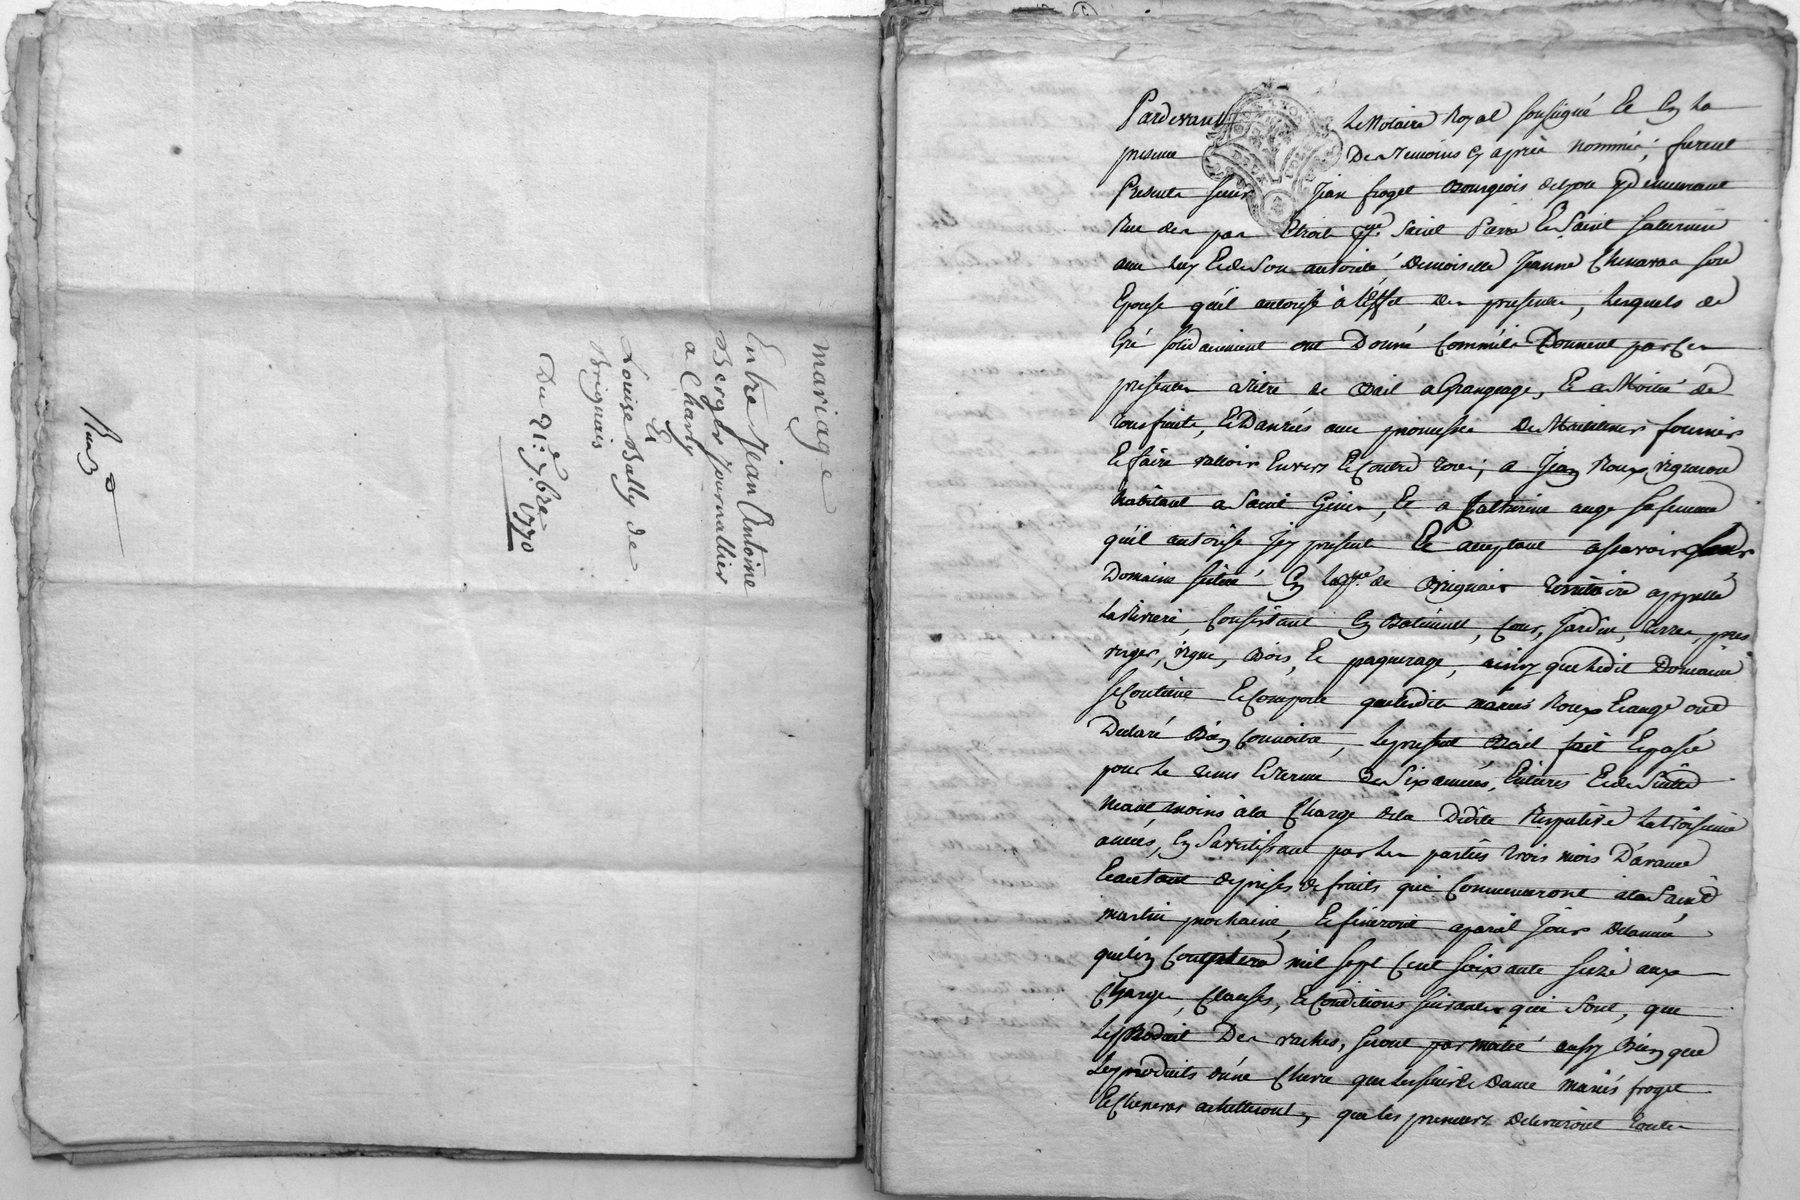 mariage
Entre Jean Antoine
Berger journallier
a Charly
Et
Louise Bally de
Brignais
Du 21e 7bre 1770
Pardevant Le Notaire Royal soussigné Et En La
presence Des temoins Cy après nommés, furent
Presents sieur Jean froget Bourgeois delyon y demeurant
Rue des pas Etroit psse Saint Pierre Et Saint Saturnin
avec luy Et de Son autorité Demoiselle Jeanne Chenavas son
Epouse qu'il autorise à l'Effet des presentes, Lesquels de
Gré solidairement ont Donné Comme ils Donnent par Ces
presentes atitre de Bail a Grangeage, Et a Moitié de
tous fruits, Et Danrées avec promesse De Maintenir fournir
Et faire valloir Envers Et Contre tous, a Jean Roux vigneron
habitant a Saint Genis, Et a Catherine ange sa femme
qu'il autorise Icy presents Et acceptant assavoir
Domaine situé En la psse de Brignais territoire appellé
La Riviere, Consistant En Batiment, Cour, Jardin, terres, prés
verger, vigne, Bois, Et paquerage, ainsy que Ledit Domaine
se Contient Et Comporte que Lesdits mariés Roux Et ange ont
Declaré Bien Connoitre, Le present Bail fait Et passé
pour Le tems Et terme De Six années, Entieres Et de Suitte
Neant moins à la Charge de la Dédite Respective La troisieme
année, En S'avertissant par Les parties trois mois D'avance
Et autant de prises de fruits qui Commenceront à la Saint
martin prochaine, Et finiront apareil Jour De l'année
que l'on Comptera mil sept Cent soixante seize aux
Charges, Clauses, Et Conditions suivantes qui Sont, que
Le produit Des vaches, seront par moitié aussy Bien que
Les produits d'une Chevre que Les sieur Et Dame mariés froget
Et Chenavas achetteront, que les preneurs Delivreront toutes